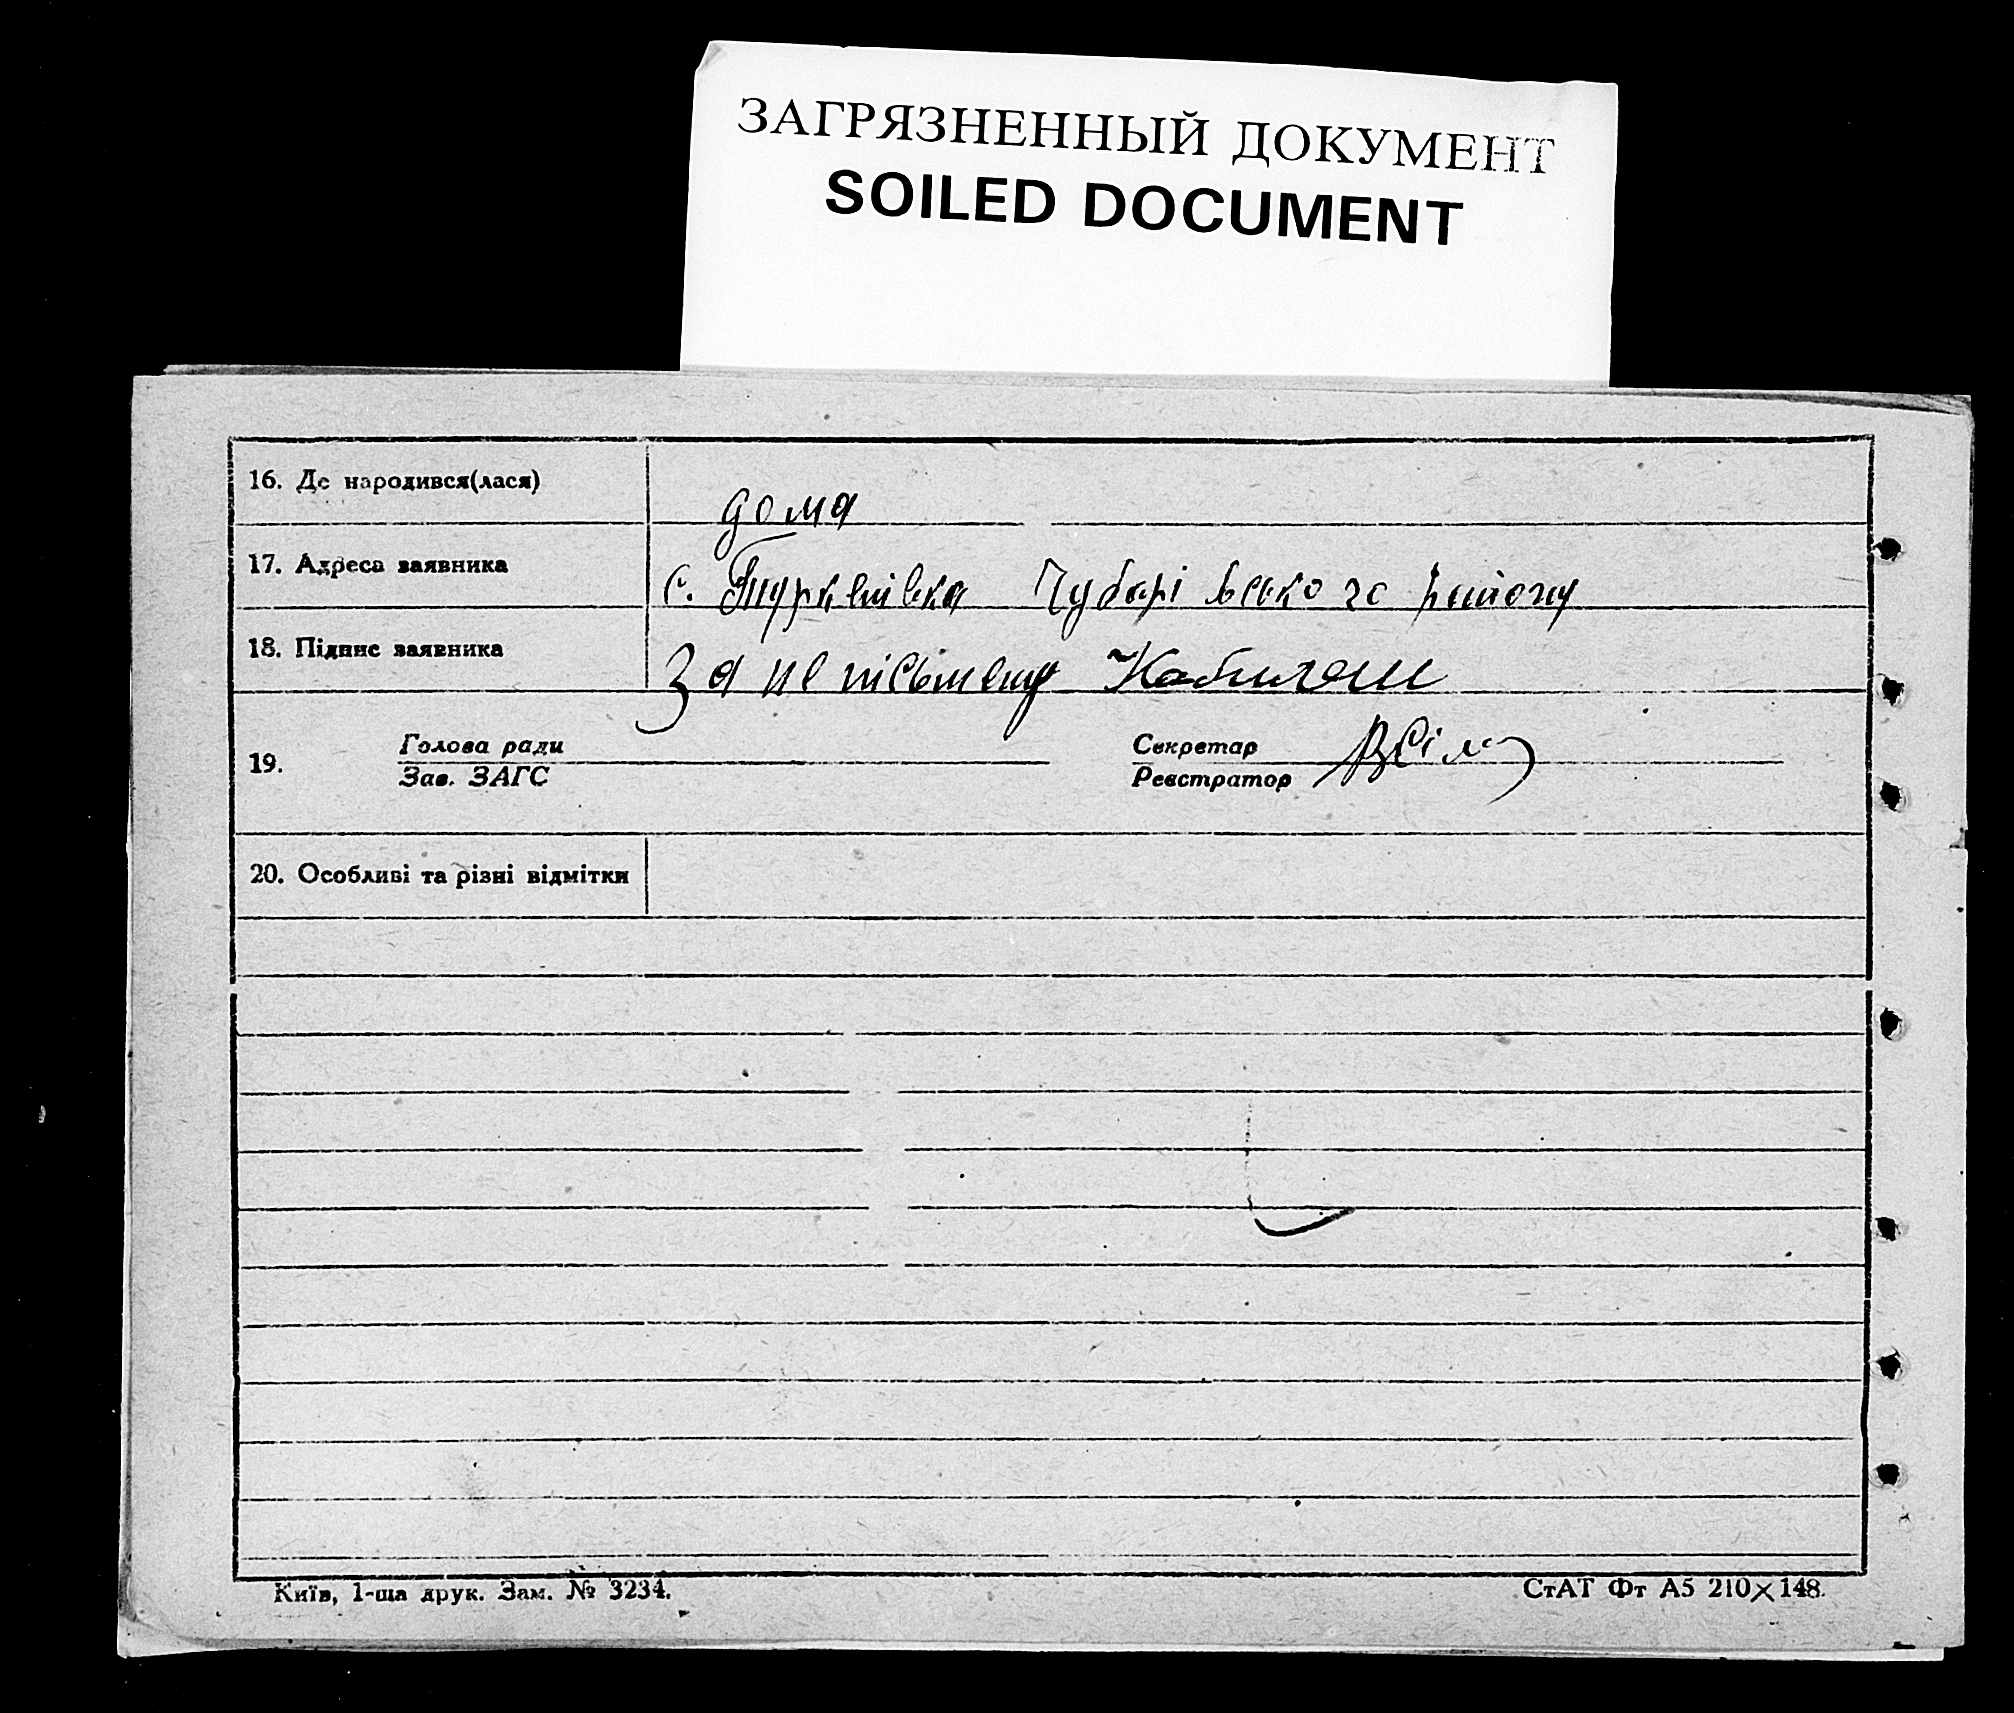 ЗАГРЯЗНЕННЫЙ ДОКУМЕНТ
SOILED DOCUMENT
16. Де народився(лася) дома
17. Адреса заявника с. Чубарівського району
18. Підпис заявника За неписьмену
19. Голова ради Секретар
Зав. ЗАГС Реєстратор
20. Особливі та різні відмітки
Київ, 1-ша друк. Зам. № 3234. СтАТ Фт А5 210×148.